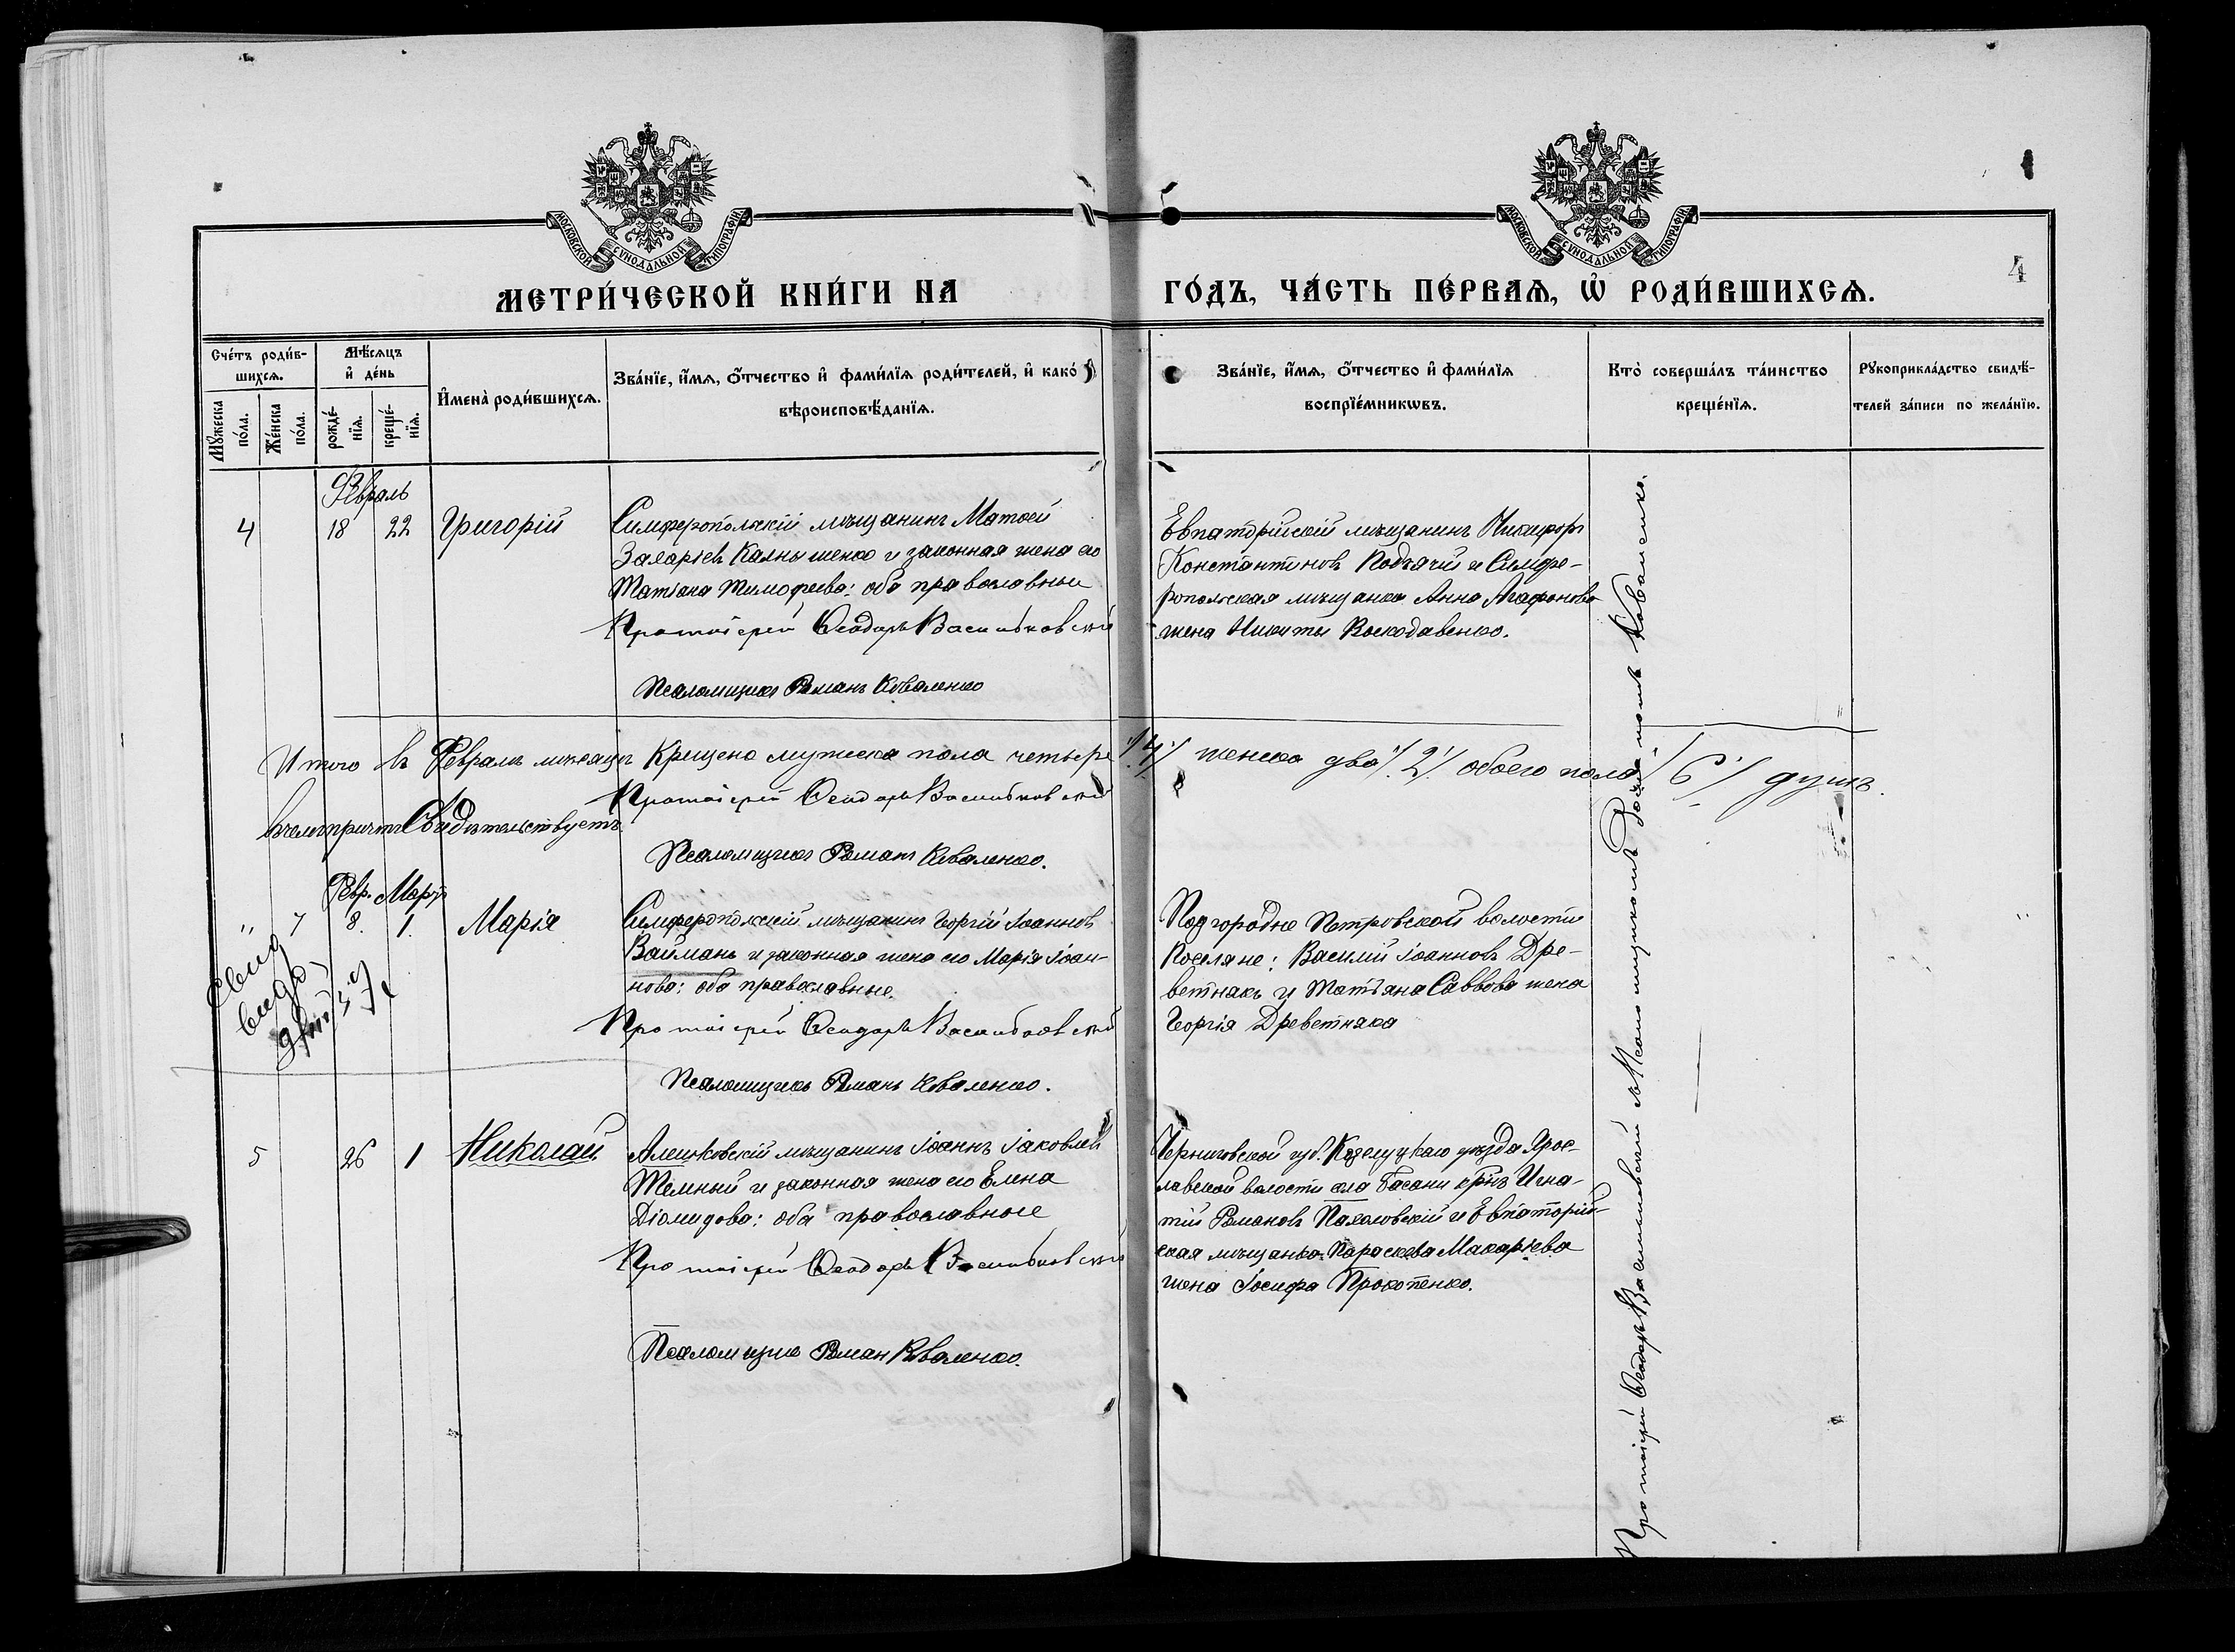 МОСКОВСКОЙ СУНОДАЛЬНОЙ ТИПОГРАФІИ
МОСКОВСКОЙ СУНОДАЛЬНОЙ ТИПОГРАФІИ
4
МЕТРИ́ЧЕСКОЙ КНИ́ГИ НА ГО́ДЪ, ЧА́СТЬ ПЕ́РВАѦ, Ѡ҆ РОДИ́ВШИХСѦ.
Сче́тъ роди́в-
шихсѧ.
Мꙋ́жеска
по́ла.
Же́нска
по́ла.
Мѣ́сѧцъ
и҆ де́нь
рожде́-
нїѧ.
креще́-
нїѧ.
И҆мена̀ роди́вшихсѧ.
Зва́нїе, и҆́мѧ, ѻ҆́тчество и҆ фами́лїѧ роди́телей, и҆ како́
вѣроисповѣ́данїѧ.
Зва́нїе, и҆́мѧ, ѻ҆́тчество и҆ фами́лїѧ
воспрїе́мникѡвъ.
Кто̀ соверша́лъ та́инство
креще́нїѧ.
Рꙋкоприкла́дство свидѣ́-
телей за́писи по жела́нїю.
Февраль
4 18 22 Григорій
Симферопольскій мѣщанинъ Матѳей
Захаріевъ Калнышенко и законная жена его
Татіана Тимофеева: оба православные
Протоіерей Ѳеодоръ Васильковскій
Псаломщикъ Романъ Коваленко
Евпаторійскій мѣщанинъ Никифоръ
Константиновъ Подъячій и Симфе-
ропольская мѣщанка Анна Агафонова
жена Никиты Воскодавенко.
Итого въ Февралѣ мѣсяцѣ крещено мужеска пола четыре /4/ женска два /2/ обоего пола /6/ душъ.
въ чемъ причтъ Свидѣтельствуетъ
Протоіерей Ѳеодоръ Васильковскій
Псаломщикъ Романъ Коваленко.
Февр. Мартъ
" 7 8. 1. Марія
Симферопольскій мѣщанинъ Георгій Іоанновъ
Вайманъ и законная жена его Марія Іоан-
нова: оба православные.
Протоіерей Ѳеодоръ Васильковскій
Псаломщикъ Романъ Коваленко.
Подгородне Петровской волости
поселяне: Василій Іоанновъ Дре-
ветнякъ и Татьяна Саввова жена
Георгія Древетняка
5 26 1 Николай
Алешковскій мѣщанинъ Іоаннъ Іаковлевъ
Темный и законная жена его Елена
Діомидова: оба православные
Протоіерей Ѳеодоръ Васильковскій
Псаломщикъ Романъ Коваленко.
Черниговской губ. Козелецкаго уѣзда Яросл-
лавской волости села Басани крнъ Игна-
тій Романовъ Пахаловскій и Евпаторій-
ская мѣщанка Параскева Макаріева
жена Іосифа Прокопенко.
Протоіерей Ѳеодоръ Васильковскій съ Псаломщикомъ Романомъ Коваленко.